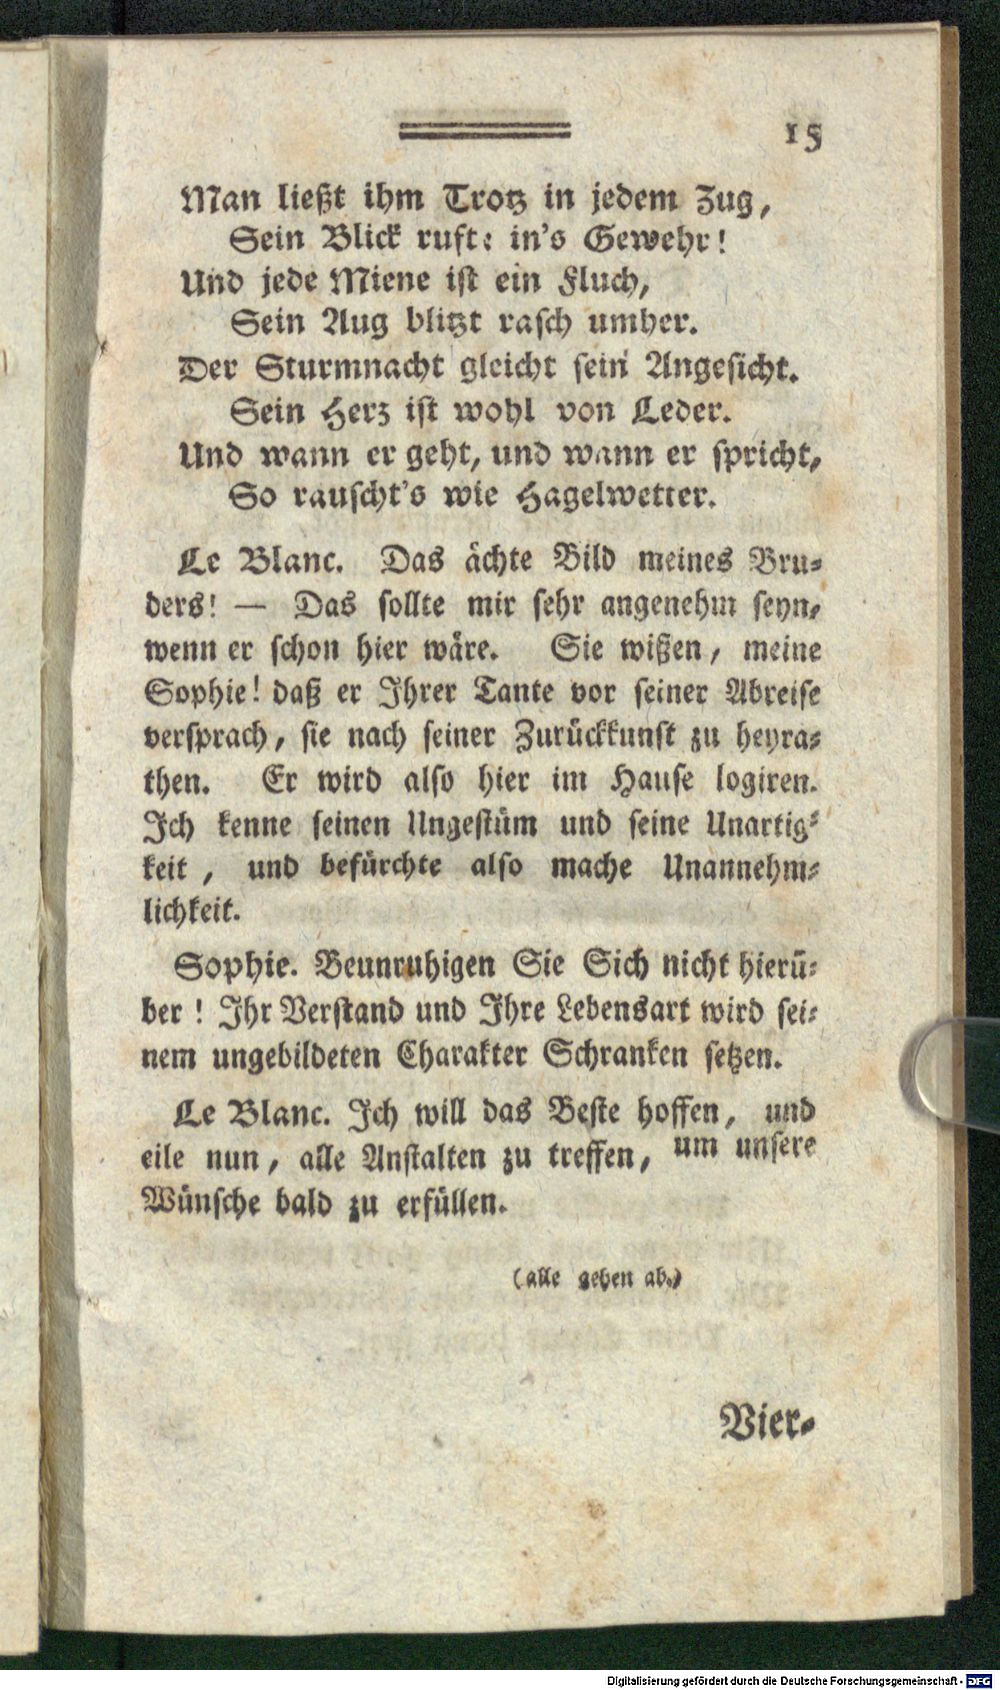 15
Man ließt ihm Trotz in jedem Zug,
Sein Blick ruft: in's Gewehr!
Und jede Miene ist ein Fluch,
Sein Aug blitzt rasch umher.
Der Sturmnacht gleicht sein Angesicht.
Sein Herz ist wohl von Leder.
Und wann er geht, und wann er spricht,
So rauscht's wie Hagelwetter.
Le Blanc. Das ächte Bild meines Bru-
ders! — Das sollte mir sehr angenehm seyn,
wenn er schon hier wäre. Sie wißen, meine
Sophie! daß er Ihrer Tante vor seiner Abreise
versprach, sie nach seiner Zurückkunft zu heyra-
then. Er wird also hier im Hause logiren.
Ich kenne seinen Ungestüm und seine Unartig-
keit, und befürchte also mache Unannehm-
lichkeit.
Sophie. Beunruhigen Sie Sich nicht hierü-
ber! Ihr Verstand und Ihre Lebensart wird sei-
nem ungebildeten Charakter Schranken setzen.
Le Blanc. Ich will das Beste hoffen, und
eile nun, alle Anstalten zu treffen, um unsere
Wünsche bald zu erfüllen.
(alle gehen ab.)
Vier-
Digitalisierung gefördert durch die Deutsche Forschungsgemeinschaft - DFG